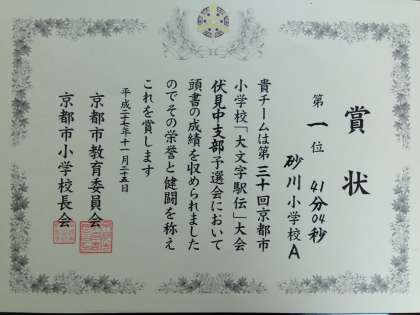 賞状
第一位 41分04秒
砂川小学校A
貴チームは第三十回京都市
小学校「大文字駅伝」大会
伏見中支部予選会において
頭書の成績を収められました
のでその栄誉と健闘を称え
これを賞します
平成二十七年十一月二十五日
京都市教育委員会
京都市小学校長会